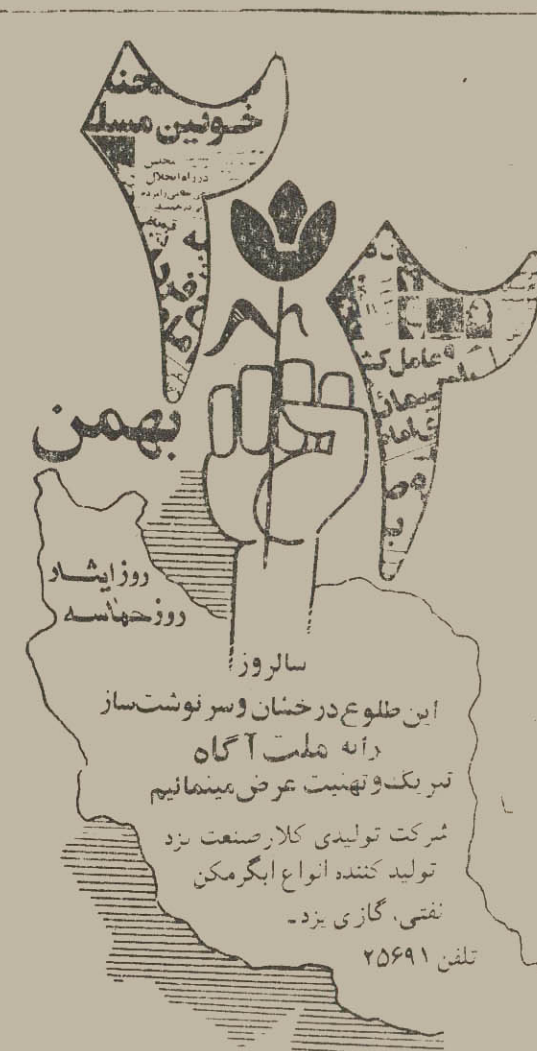 ۲۲
خونین مسل
مجلس
در راه انحلال
عامل کش
بهمن
روز ایثار
روز حماسه
سالروز
این طلوع درخشان و سرنوشت‌ساز
را به ملت آگاه
تبریک و تهنیت عرض مینمائیم
شرکت تولیدی کلار صنعت یزد
تولید کننده انواع ابگرمکن
نفتی، گازی یزد۔
تلفن ۲۵۶۹۱